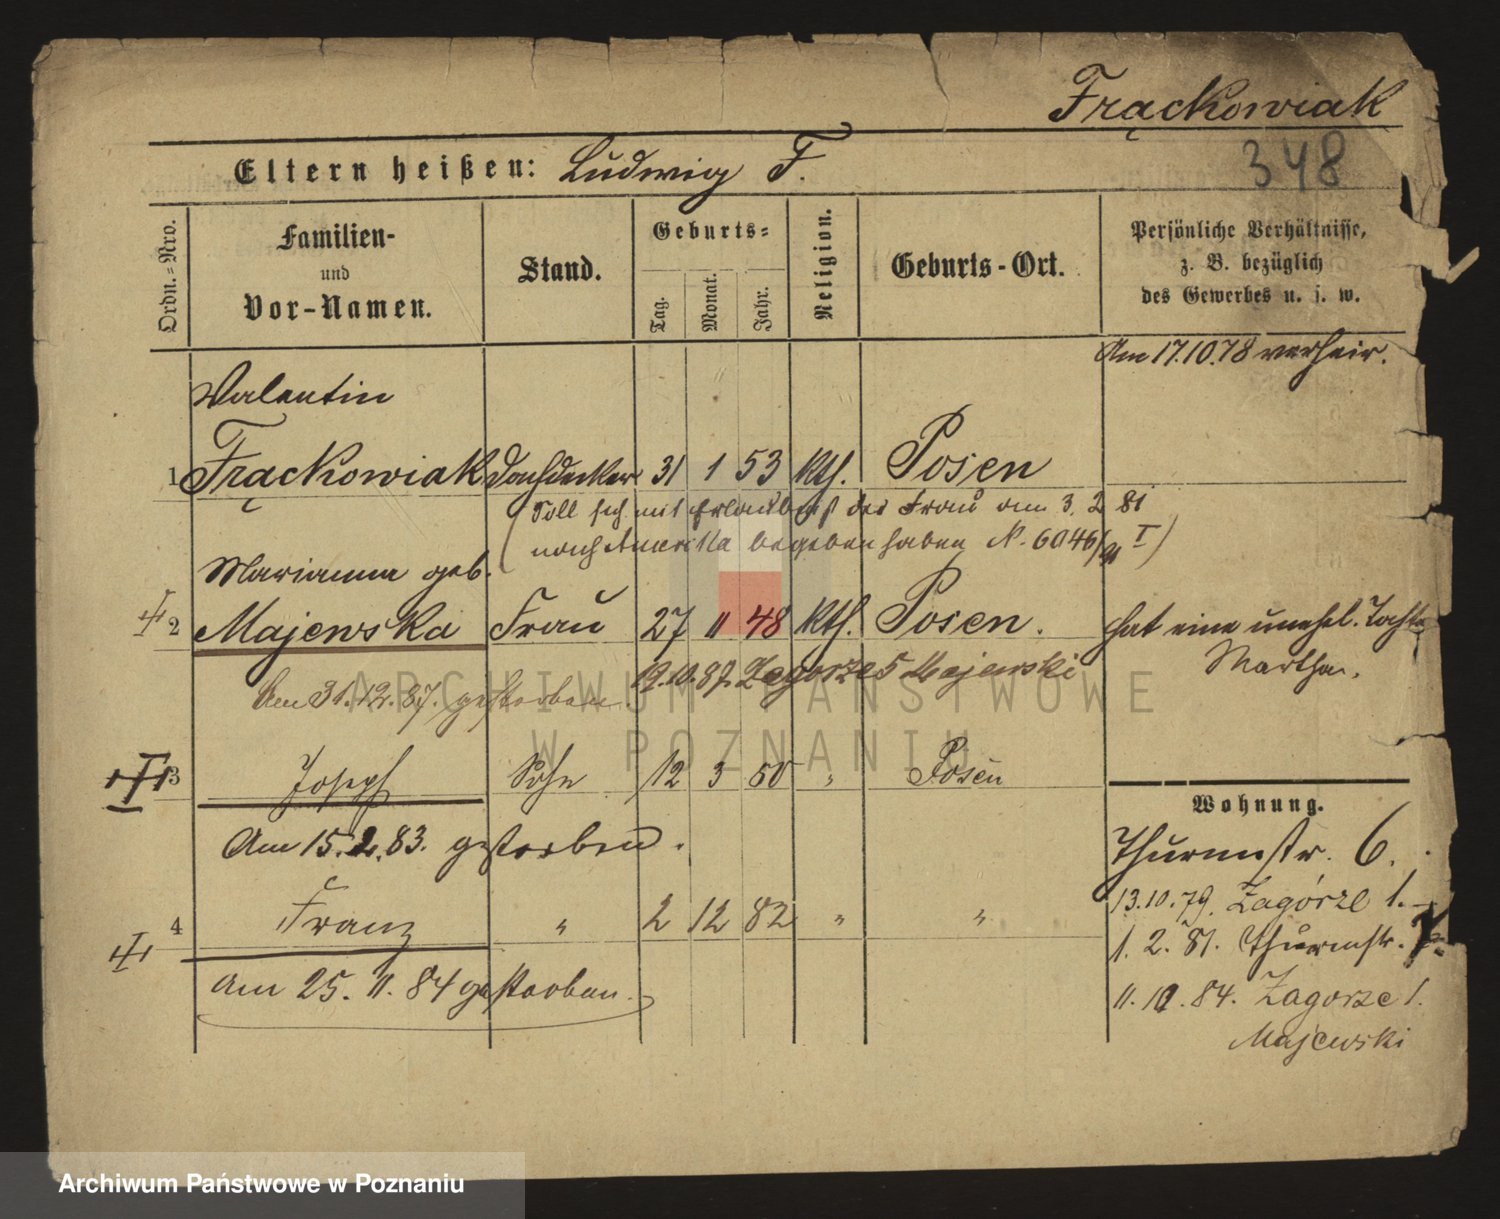 Frąckowiak
348
Eltern heißen: Ludwig F.
Ordn.=Nro.
Familien-
und
Vor-Namen.
Stand.
Geburts=
Tag.
Monat.
Jahr.
Religion.
Geburts-Ort.
Persönliche Verhältnisse,
z. B. bezüglich
des Gewerbes u. s. w.
Am 17.10.78 verheir.
Valentin
1 Frąckowiak Dachdecker 31 1 53 kth. Posen
(Soll sich mit Erlaubniß der Frau am 3. 2 81
nach Amerika begeben haben N. 6046/81 I)
Marianna geb.
2 Majewska Frau 27 11 48 kth. Posen.
hat eine unehel. Tochter
Martha.
19.10.87. Zagorze 5 Majewski
Am 31.12.87. gestorben.
3 Joseph Sohn 12 3 80 " Posen
Am 15.2.83. gestorben.
4 Franz " 2 12 82 " "
Am 25. 11. 84 gestorben.
Wohnung.
Thurmstr. 6.
13.10.79. Zagórze 1.
1. 2. 81. Thurmstr. 7.
11. 10. 84. Zagorze 1.
Majewski
ARCHIWUM PAŃSTWOWE
W POZNANIU
Archiwum Państwowe w Poznaniu